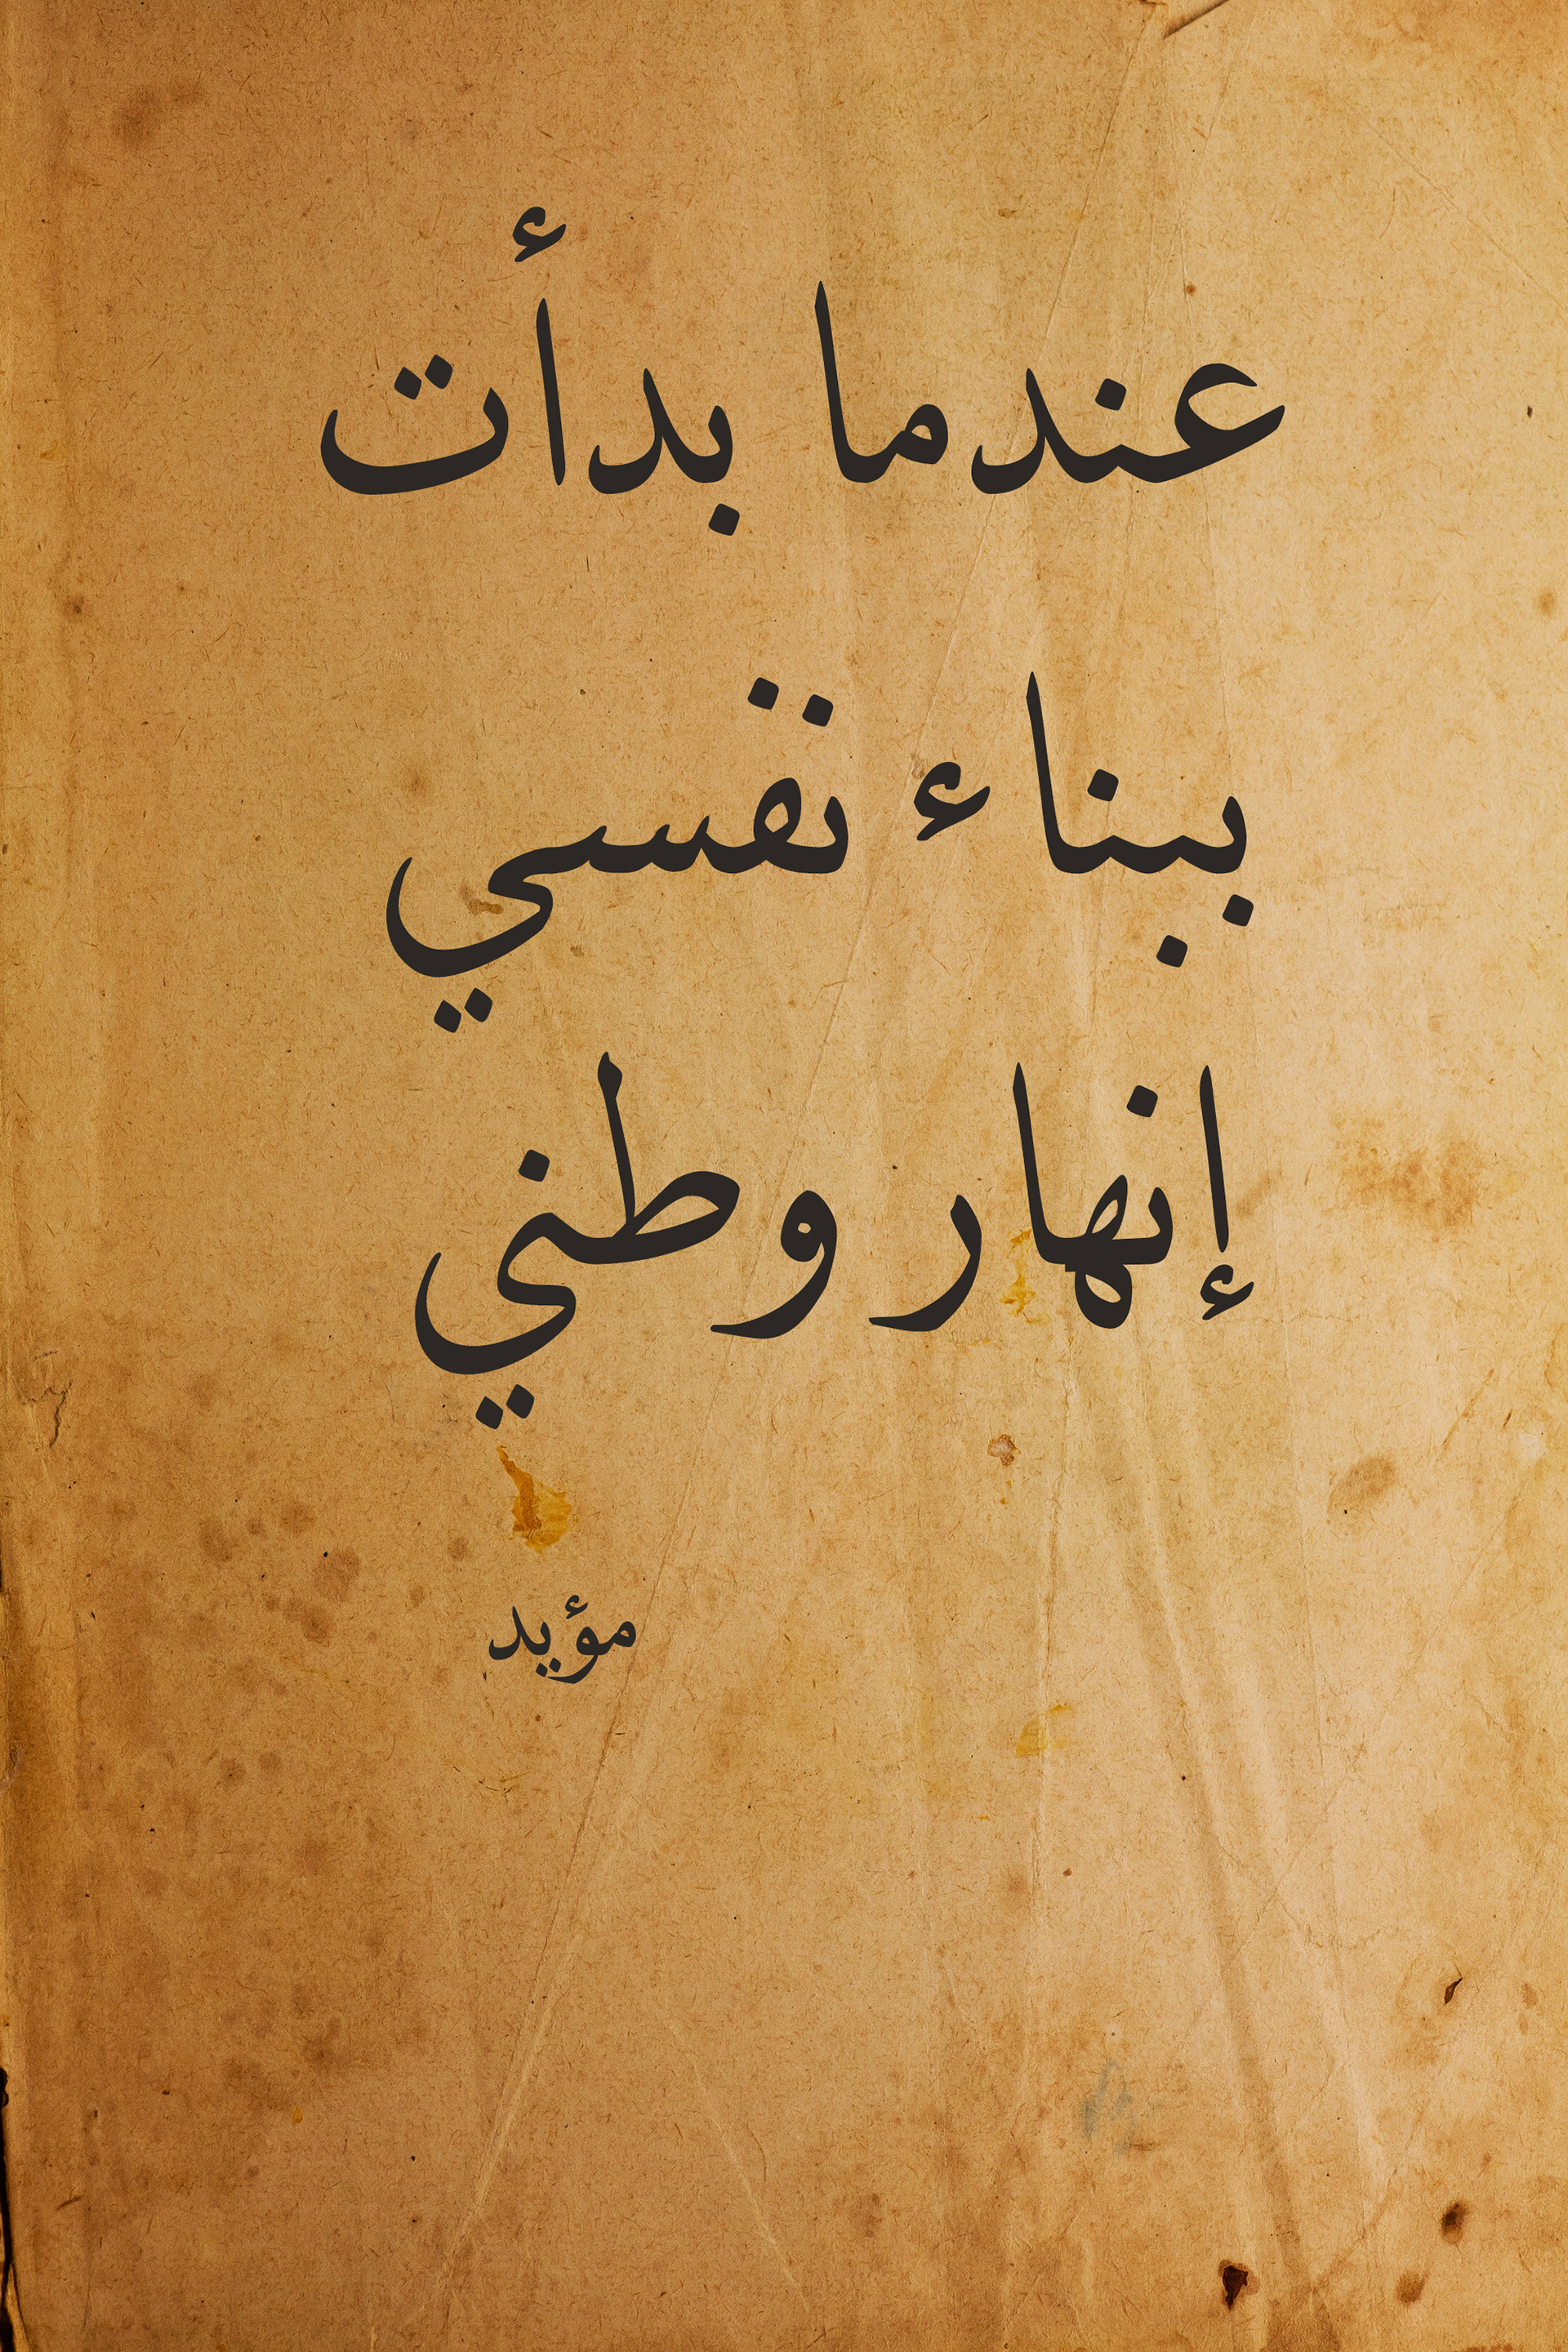 عندما بدأت
ببناء نفسي
إنهار وطني
مؤيد